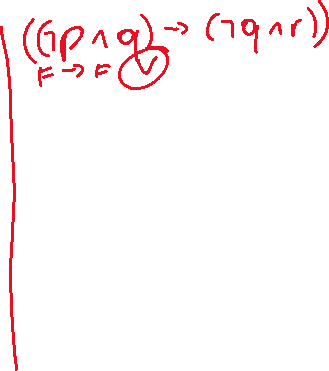 ((¬p ∧ q) → (¬q ∧ r))
F → F V